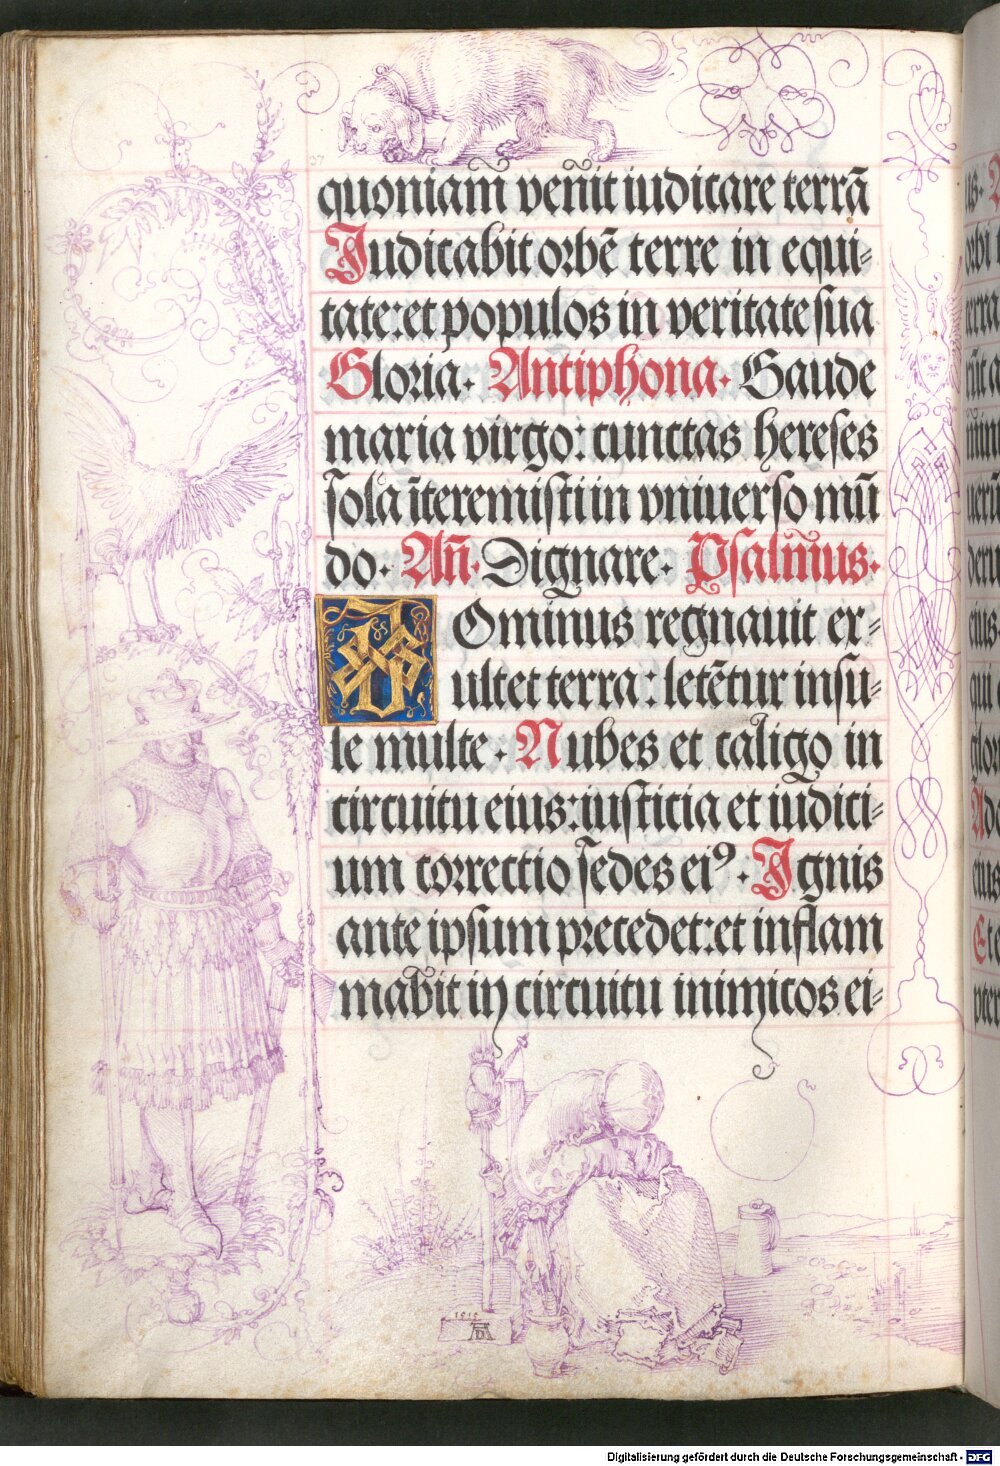 27
quoniam̄ ven̄it iudicare terrā
Judicabit orbē terre in equi=
tate: et populos in veritate sua
Gloria. Antiphona. Gaude
maria virgo: cunctas hereses
sola īteremisti in vniuerso mū
do. An̄. Dignare. Psalm̄us.
Dominus regnauit ex=
ultet terra: letētur insu=
le multe. Nubes et caligo in
circuitu eius: iusticia et iudici=
um correctio sedes eiꝰ. Ignis
ante ipsum precedet: et inflam
mabit in circuitu inimicos ei=
1515
AD
Digitalisierung gefördert durch die Deutsche Forschungsgemeinschaft - DFG